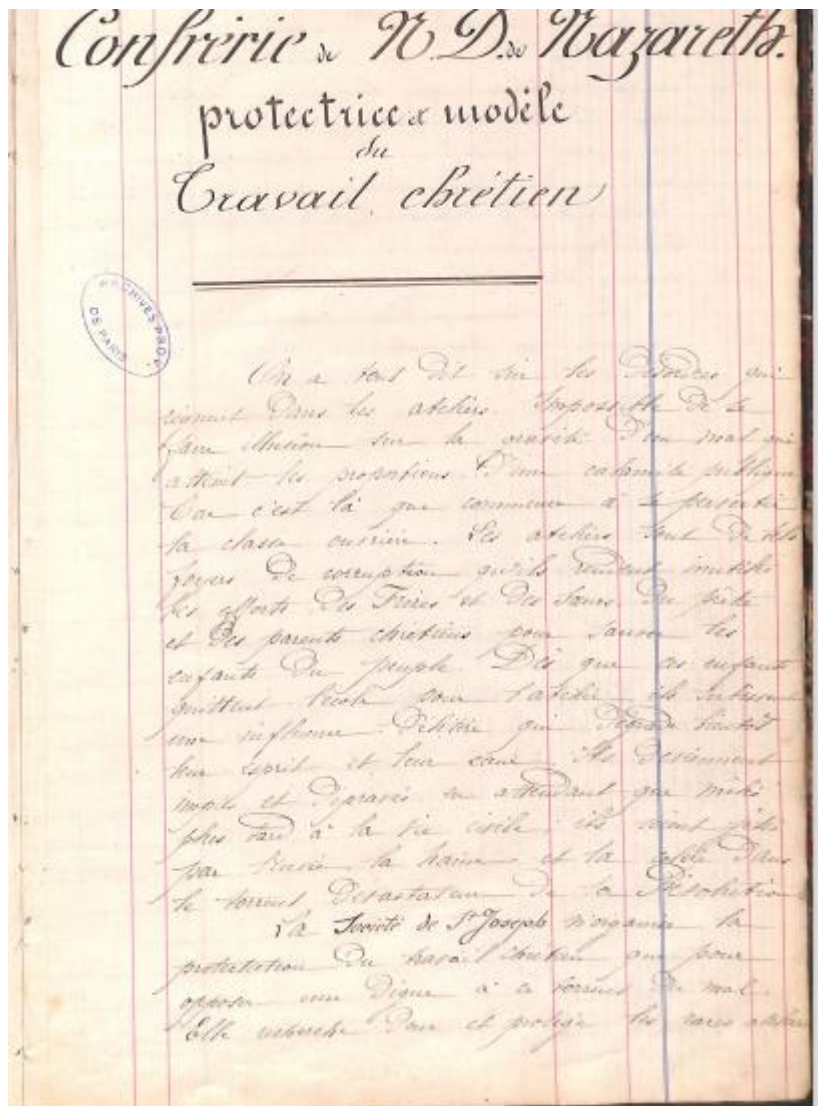 Confrérie de N.D. de Nazareth.
protectrice & modèle
du
Travail chrétien
ARCHIVES PROV.
DE PARIS
On a tout dit sur les désordres qui
règnent dans les ateliers. Impossible de se
faire illusion sur la gravité d'un mal qui
atteint les proportions d'une calamité publique
Car c'est là que commence à se pervertir
la classe ouvrière. Les ateliers sont de tels
foyers de corruption qu'ils rendent inutiles
les efforts des Frères et des Sœurs du prêtre
et des parents chrétiens pour sauver les
enfants du peuple. Dès que ces enfants
quittent l'école pour l'atelier ils subissent
une influence délétère qui dégrade bientôt
leur esprit et leur cœur. Ils deviennent
impies et dépravés en attendant que mêlés
plus tard à la vie civile ils soient jetés
par l'envie la haine et la dans
le torrent dévastateur de la Révolution
La Société de St Joseph n'organise la
du travail chrétien que pour
opposer une digue à ce torrent du mal.
Elle recherche donc et protège les rares ateliers